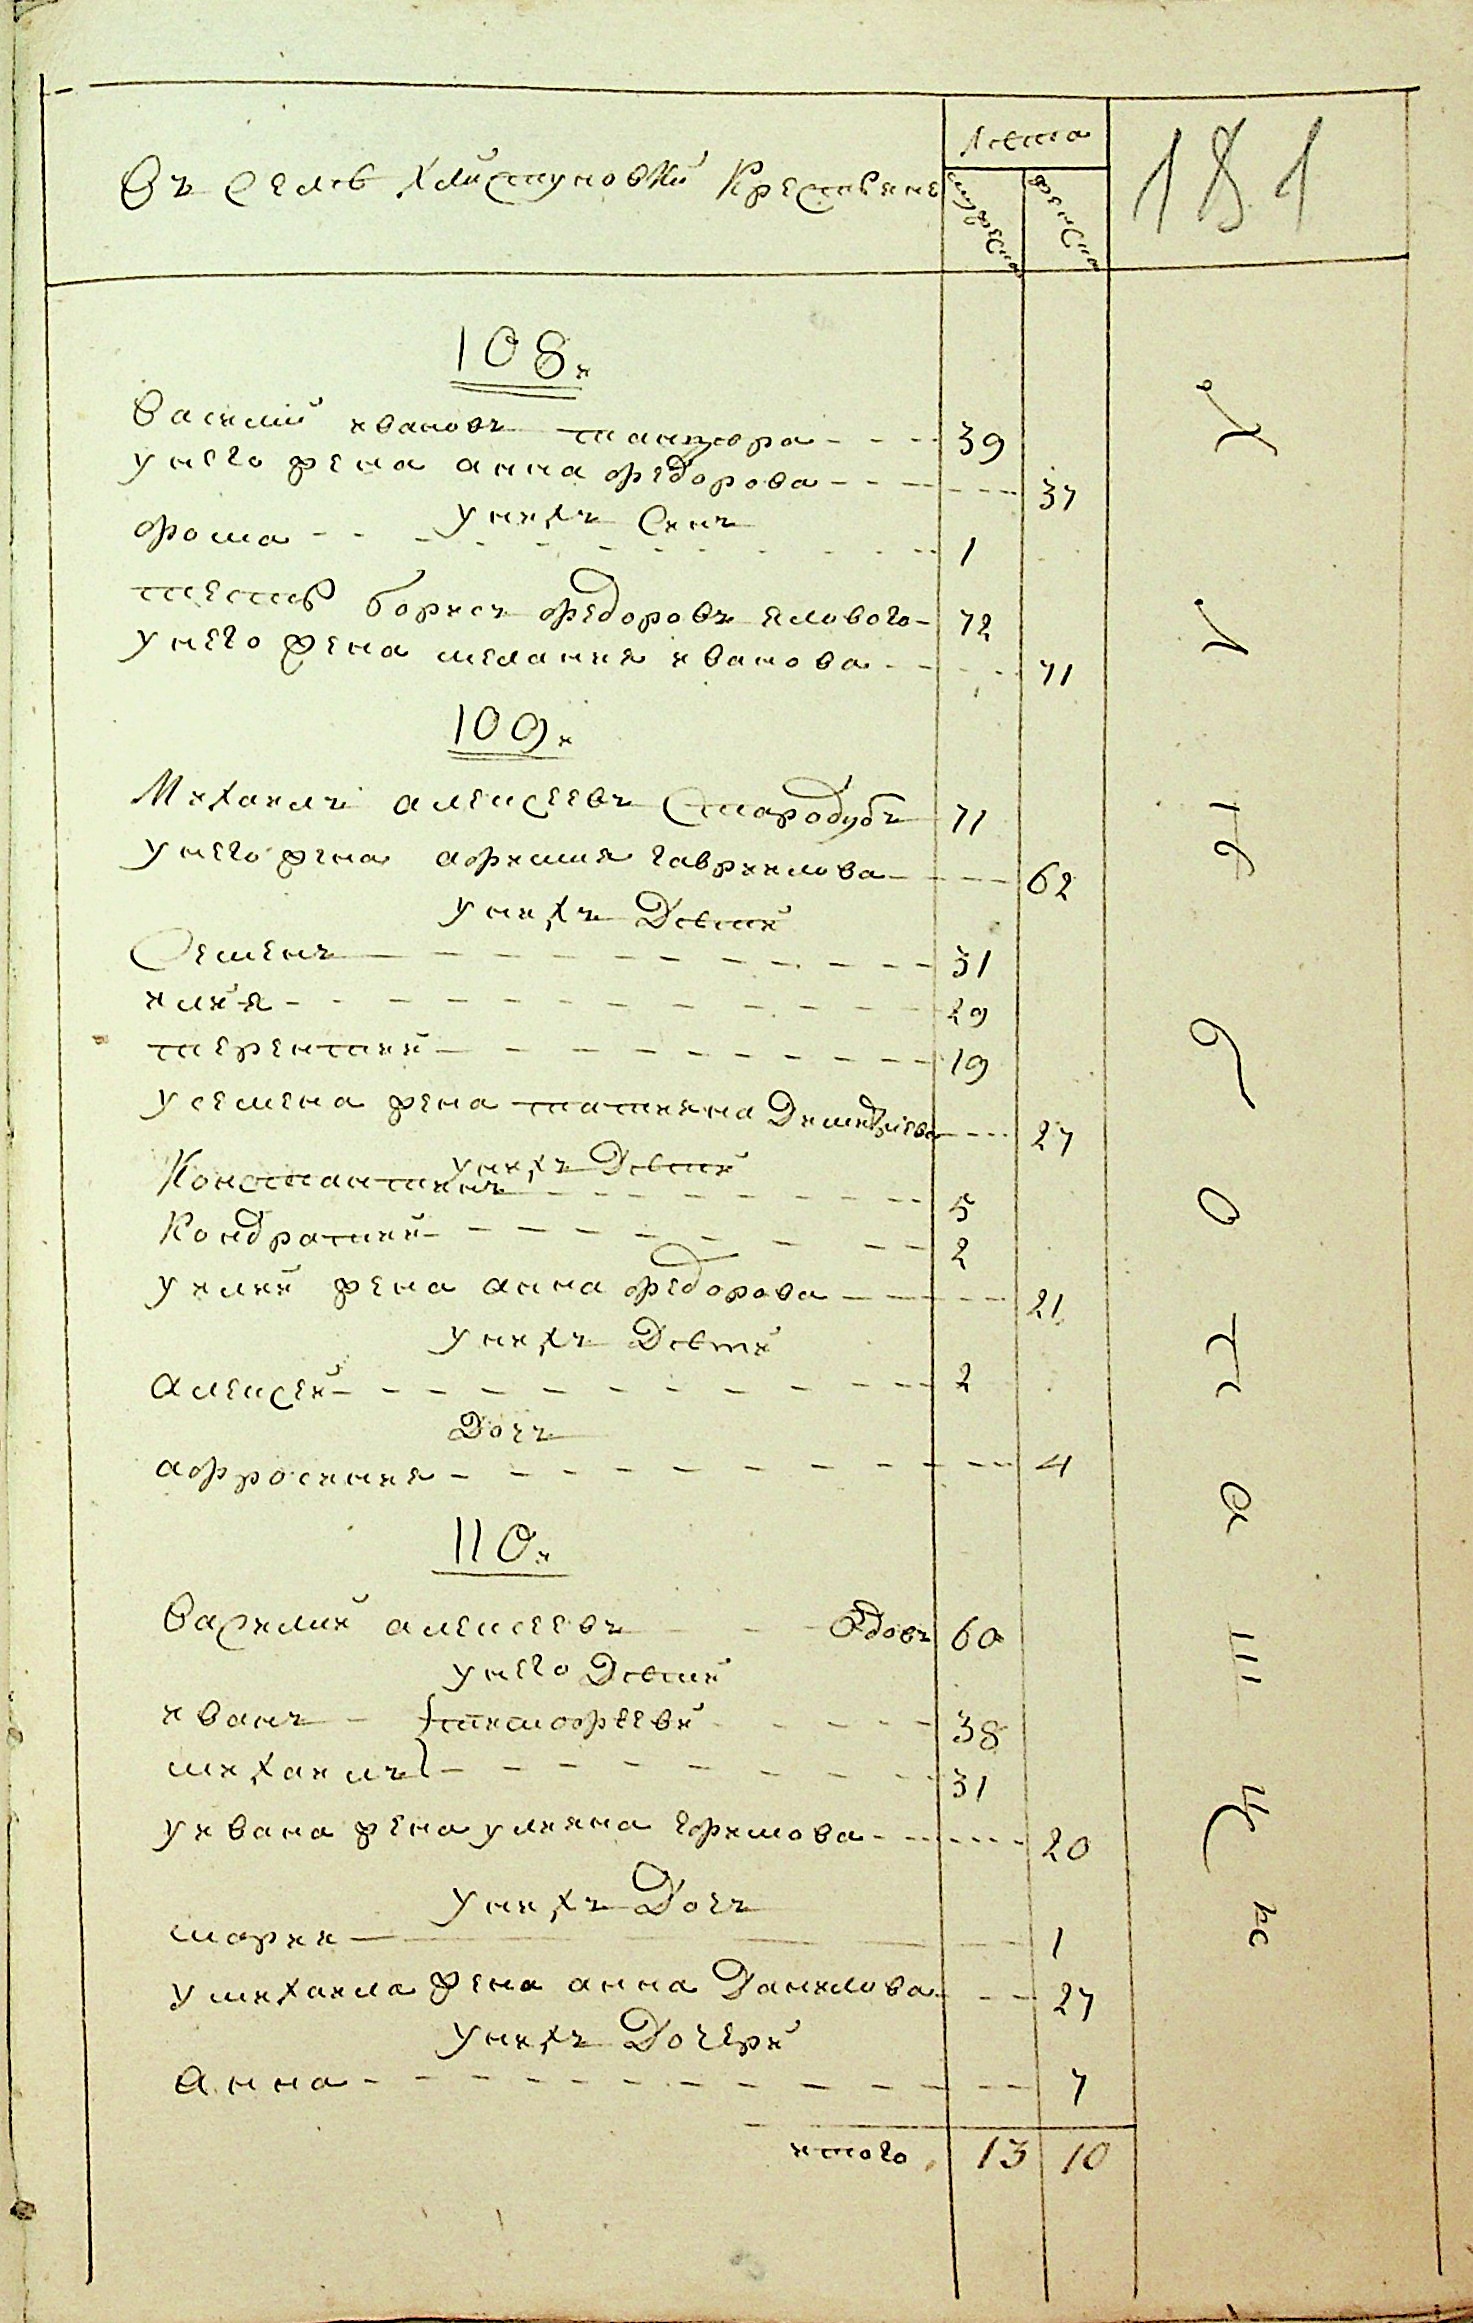 Въ селѣ Хлистуновки Крестьяне
Лѣта
мужеска
женска
181
108.
Василий ивановъ танцюра 39
у него жена анна федорова 37
у нихъ Синъ
фома 1
тесть борисъ федоровъ ялового 72
у него жена мелания иванова 71
109.
Михаилъ алексеевъ Стародубъ 71
у него жена афимия гавриилова 62
у нихъ Дѣти
Семенъ 31
илия 29
терентий 19
у семена жена татияна Димитриева 27
у нихъ Дѣти
Константинъ 5
Кондратий 2
у илии жена анна федорова 21
у нихъ Дѣти
алексей 2
Дочъ
афросиния 4
110.
Василий алексеевъ вдовъ 60
у него Дѣти
иванъ тимофееви 38
михаилъ 31
у ивана жена улияна ефимова 20
у нихъ Дочъ
мария 1
у михаила жена анна Данилова 27
у нихъ Дочери
анна 7
итого 13 10